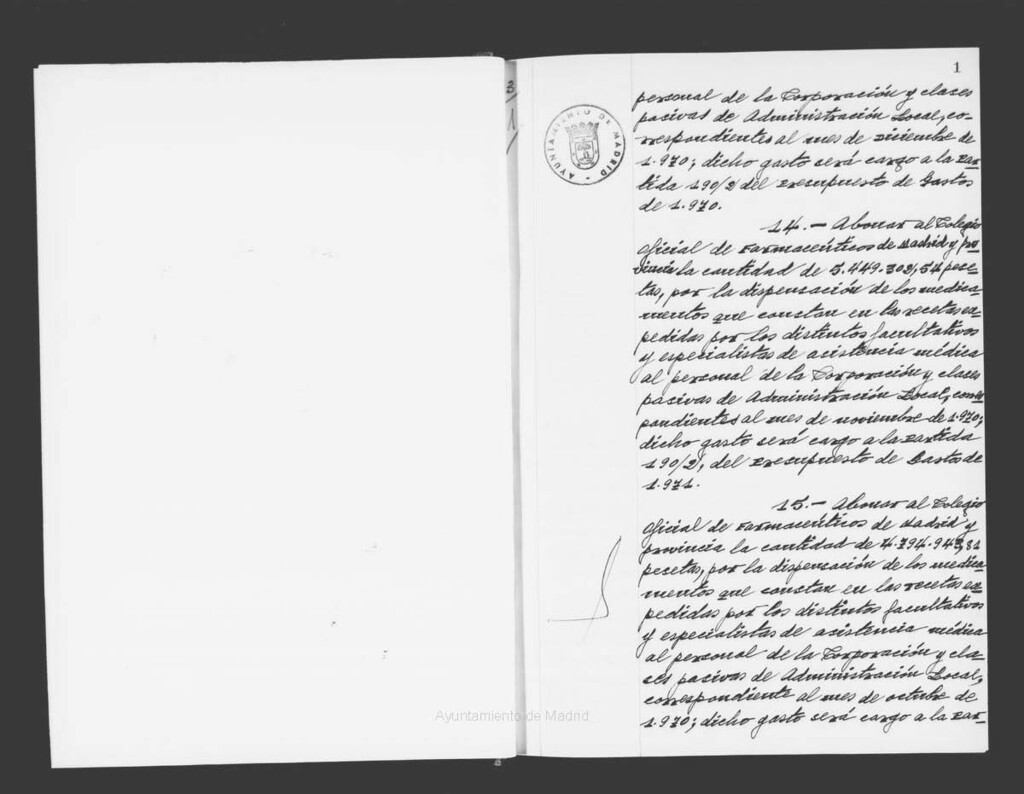 1
AYUNTAMIENTO DE MADRID
personal de la Corporación y clases
pasivas de Administración Local, co-
rrespondientes al mes de Diciembre de
1.970; dicho gasto será cargo a la Par-
tida 190/2 del Presupuesto de Gastos
de 1.970.
14.- Abonar al Colegio
Oficial de Farmacéuticos de Madrid y pro-
vincia la cantidad de 5.449.302,54 pese-
tas, por la dispensación de los medica-
mentos que constan en las recetas ex-
pedidas por los distintos facultativos
y especialistas de asistencia médica
al personal de la Corporación y clases
pasivas de Administración Local, corres-
pondientes al mes de noviembre de 1.970;
dicho gasto será cargo a la Partida
190/2, del Presupuesto de Gastos de
1.971.
15.- Abonar al Colegio
Oficial de Farmacéuticos de Madrid y
provincia la cantidad de 4.794.943,81
pesetas, por la dispensación de los medica-
mentos que constan en las recetas ex-
pedidas por los distintos facultativos
y especialistas de asistencia médica
al personal de la Corporación y cla-
ses pasivas de Administración Local,
correspondiente al mes de octubre de
1.970; dicho gasto será cargo a la Par-
Ayuntamiento de Madrid